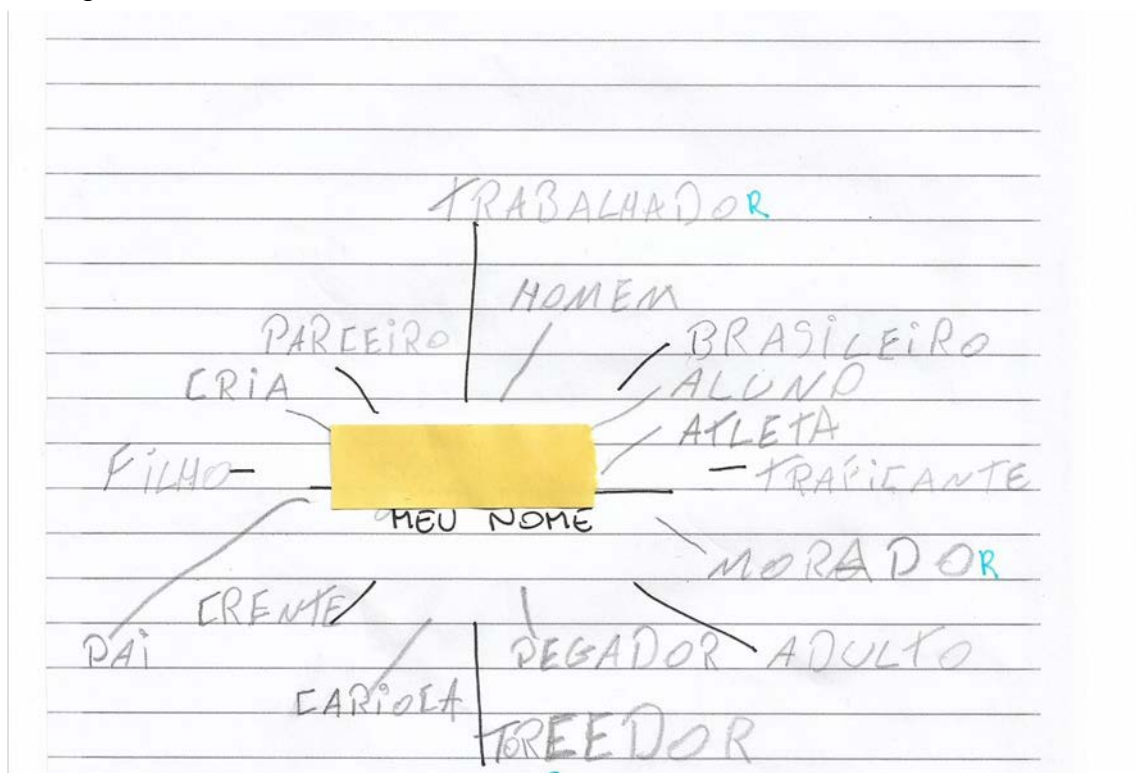 TRABALHADOR
HOMEM
PARCEIRO
BRASILEIRO
CRIA
ALUNO
ATLETA
FILHO
TRAFICANTE
MEU NOME
MORADOR
CRENTE
PAI
PEGADOR
ADULTO
CARIOCA
TOREEDOR